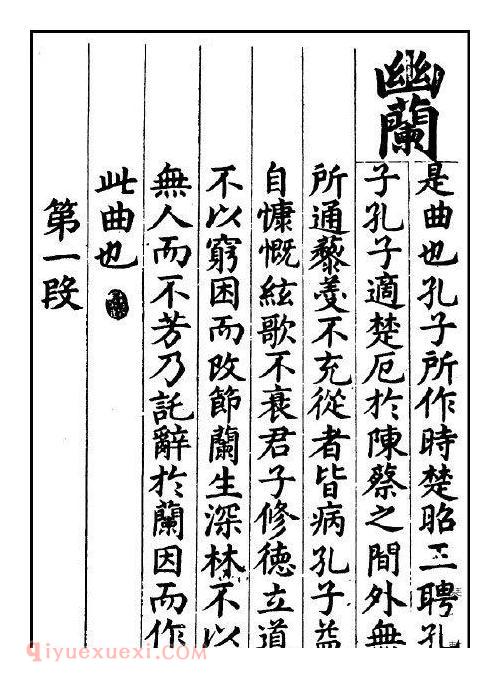 幽蘭
是曲也孔子所作時楚昭王聘孔
子孔子適楚厄於陳蔡之間外無
所通藜羹不充從者皆病孔子益
自慷慨絃歌不衰君子修德立道
不以窮困而改節蘭生深林不以
無人而不芳乃託辭於蘭因而作
此曲也
第一段
qiyuexuexi.com